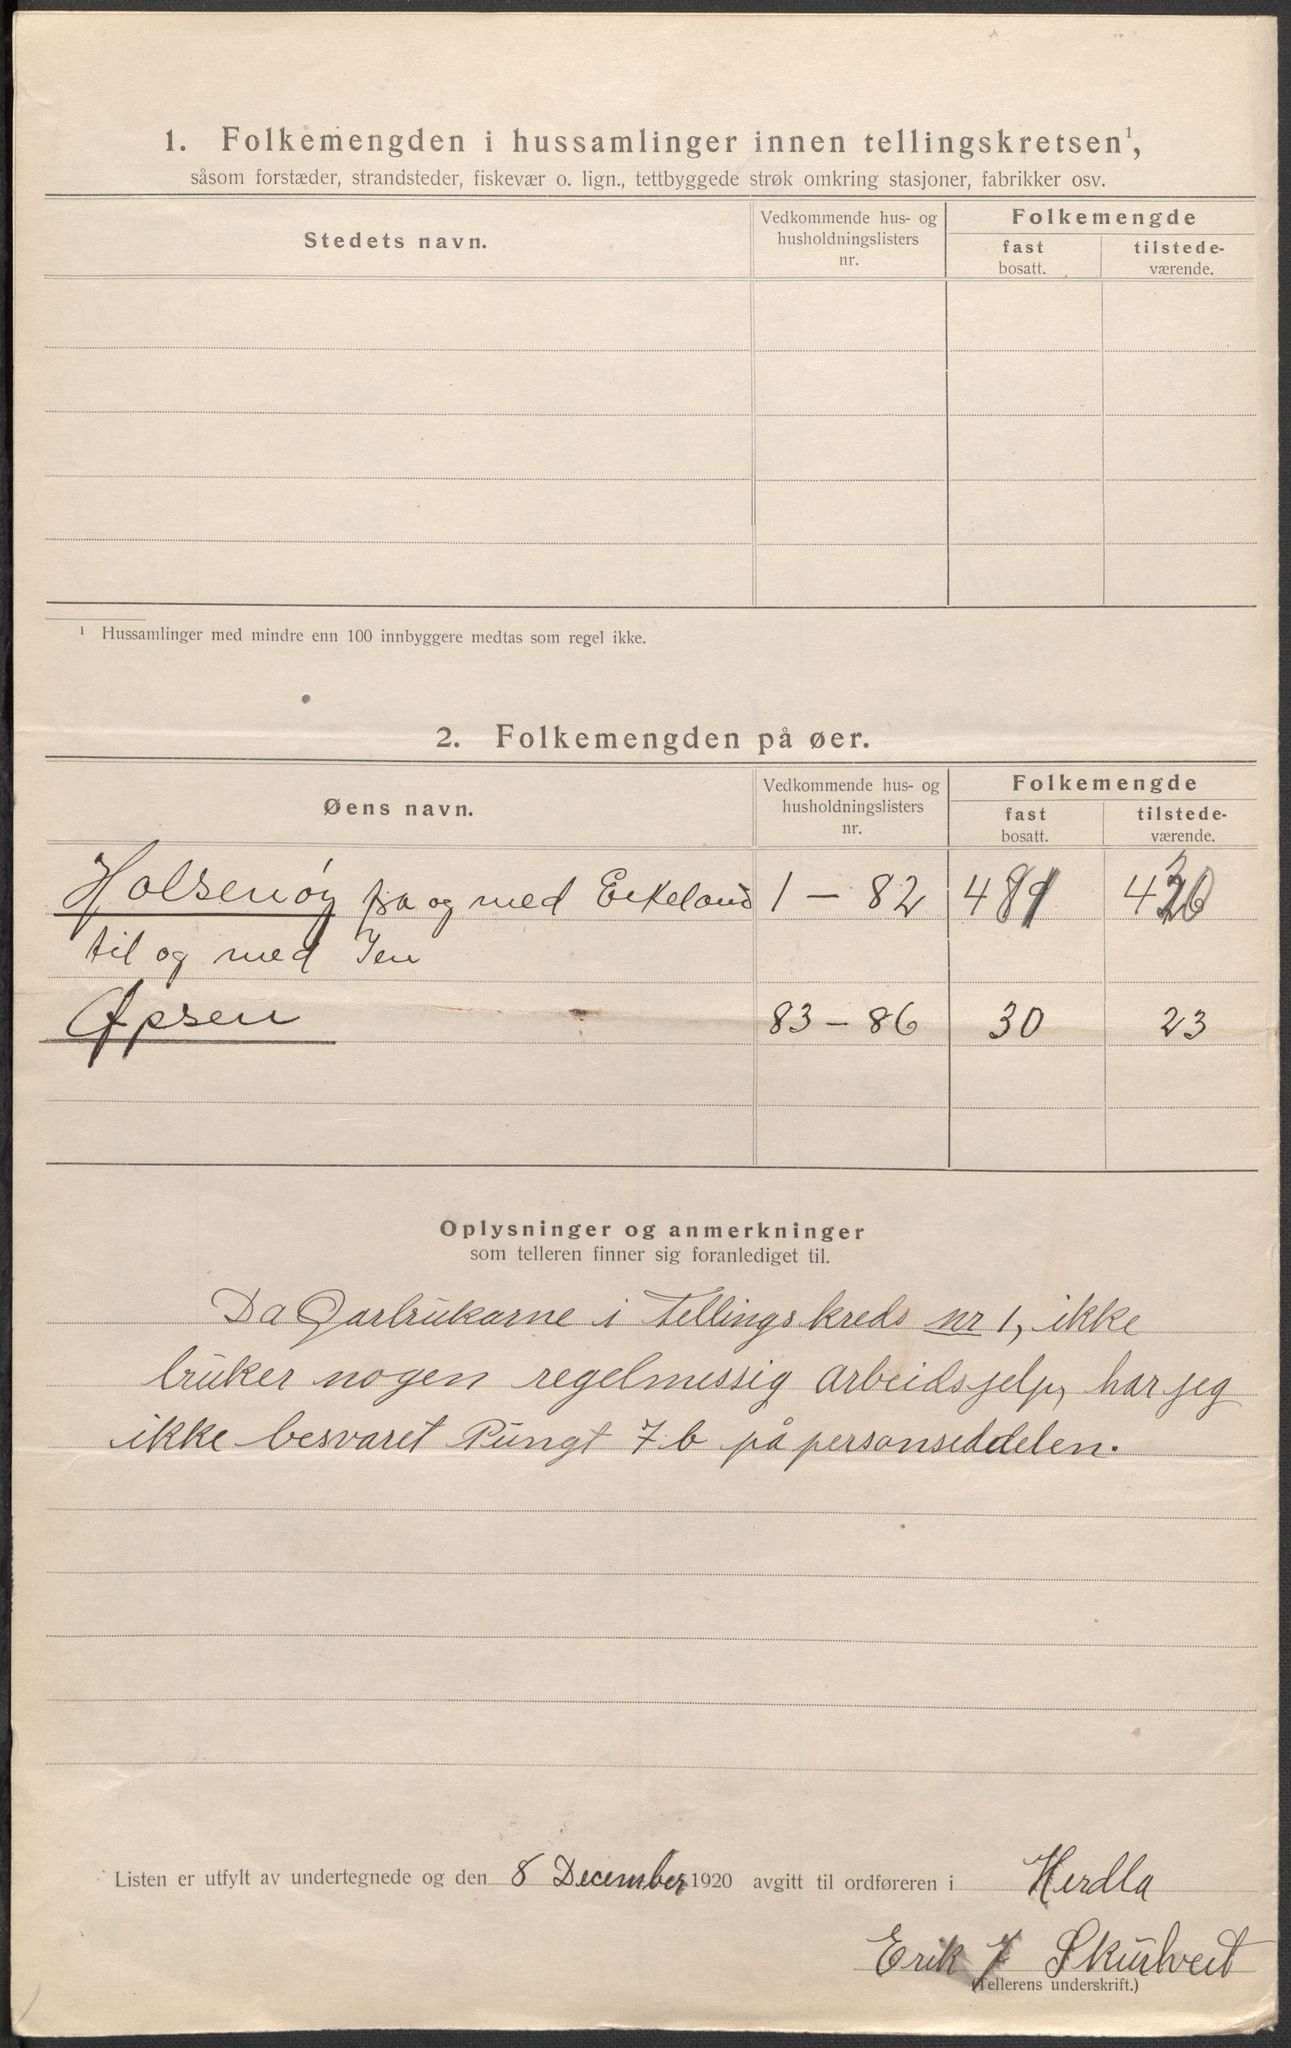 1. Folkemengden i hussamlinger innen tellingskretsen¹,
såsom forstæder, strandsteder, fiskevær o. lign., tettbyggede strøk omkring stasjoner, fabrikker osv.
Stedets navn.
Vedkommende hus- og husholdningslisters nr.
Folkemengde
fast bosatt.
tilstede-værende.
¹ Hussamlinger med mindre enn 100 innbyggere medtas som regel ikke.
2. Folkemengden på øer.
Øens navn.
Vedkommende hus- og husholdningslisters nr.
Folkemengde
fast bosatt.
tilstede-værende.
Holsenøy fra og med Eikeland 1 – 82
til og med Io
83 – 86 30 23
Oplysninger og anmerkninger
som telleren finner sig foranlediget til.
Da Garbrukarne i Tellingskreds nr 1, ikke
bruker nogen regelmessig arbeidsjelp, har jeg
ikke besvaret Pungt 7 b på personseddelen.
Listen er utfylt av undertegnede og den 8 December 1920 avgitt til ordføreren i Herdla
Erik J Skurtveit
(Tellerens underskrift.)